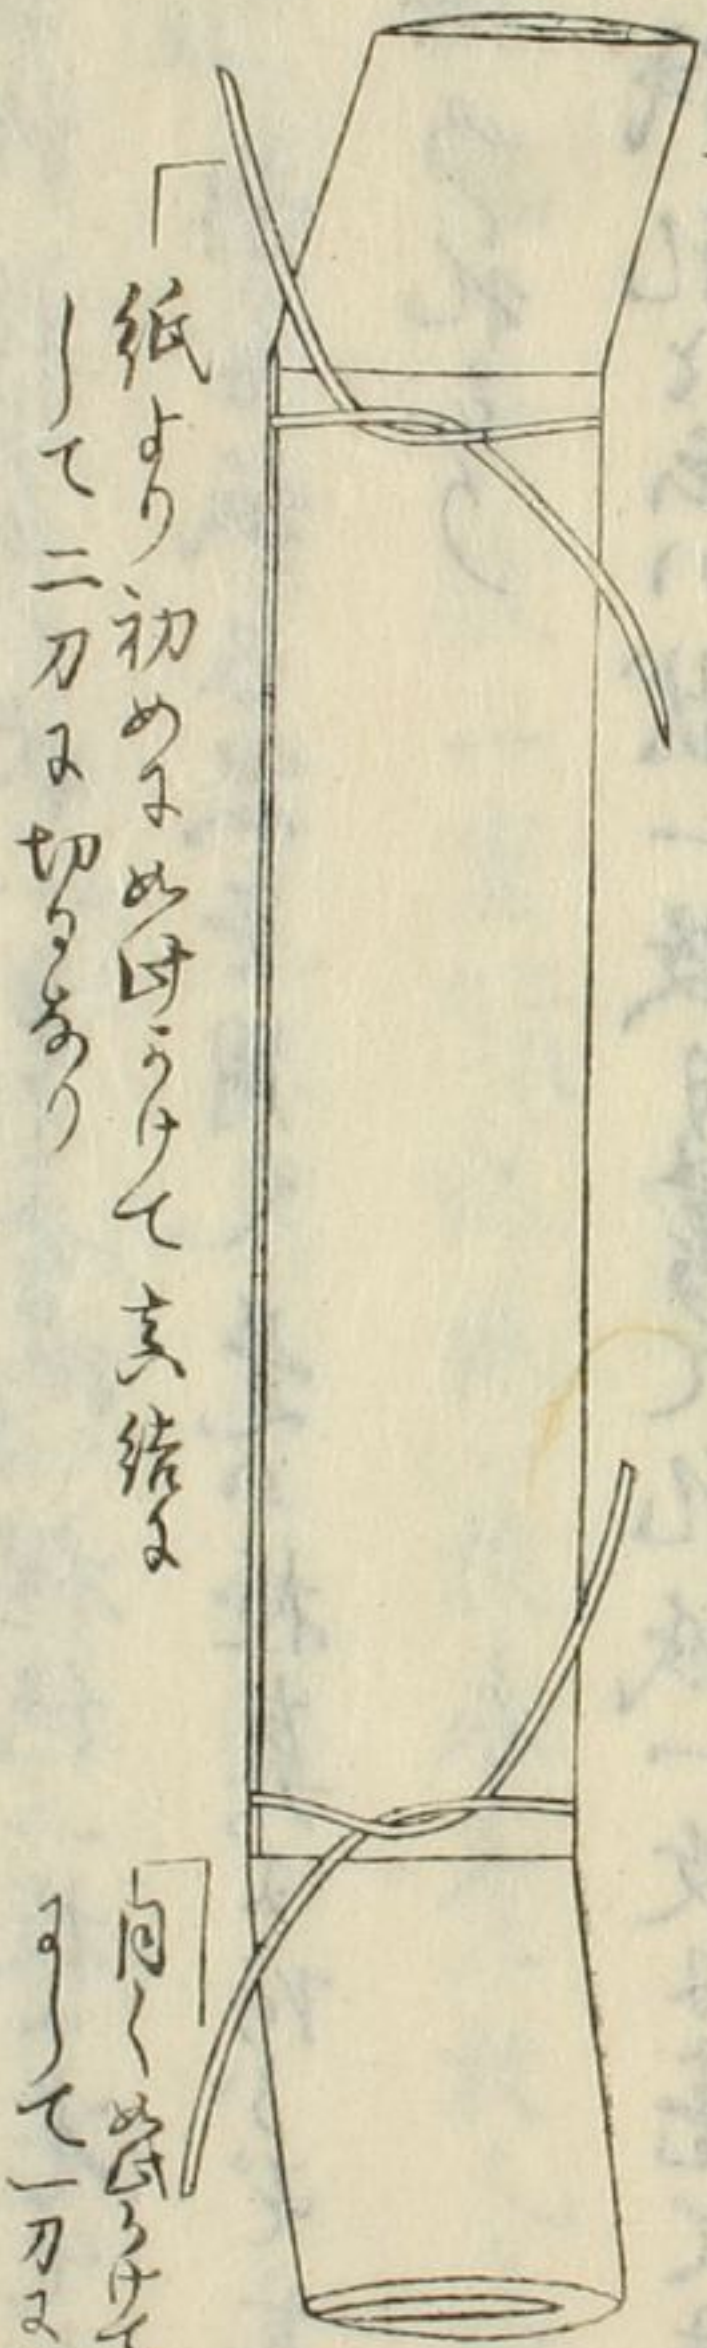 紙より初めに如此かけて真結に
して二刀に切るなり
同く如此かけて
にして一刀に